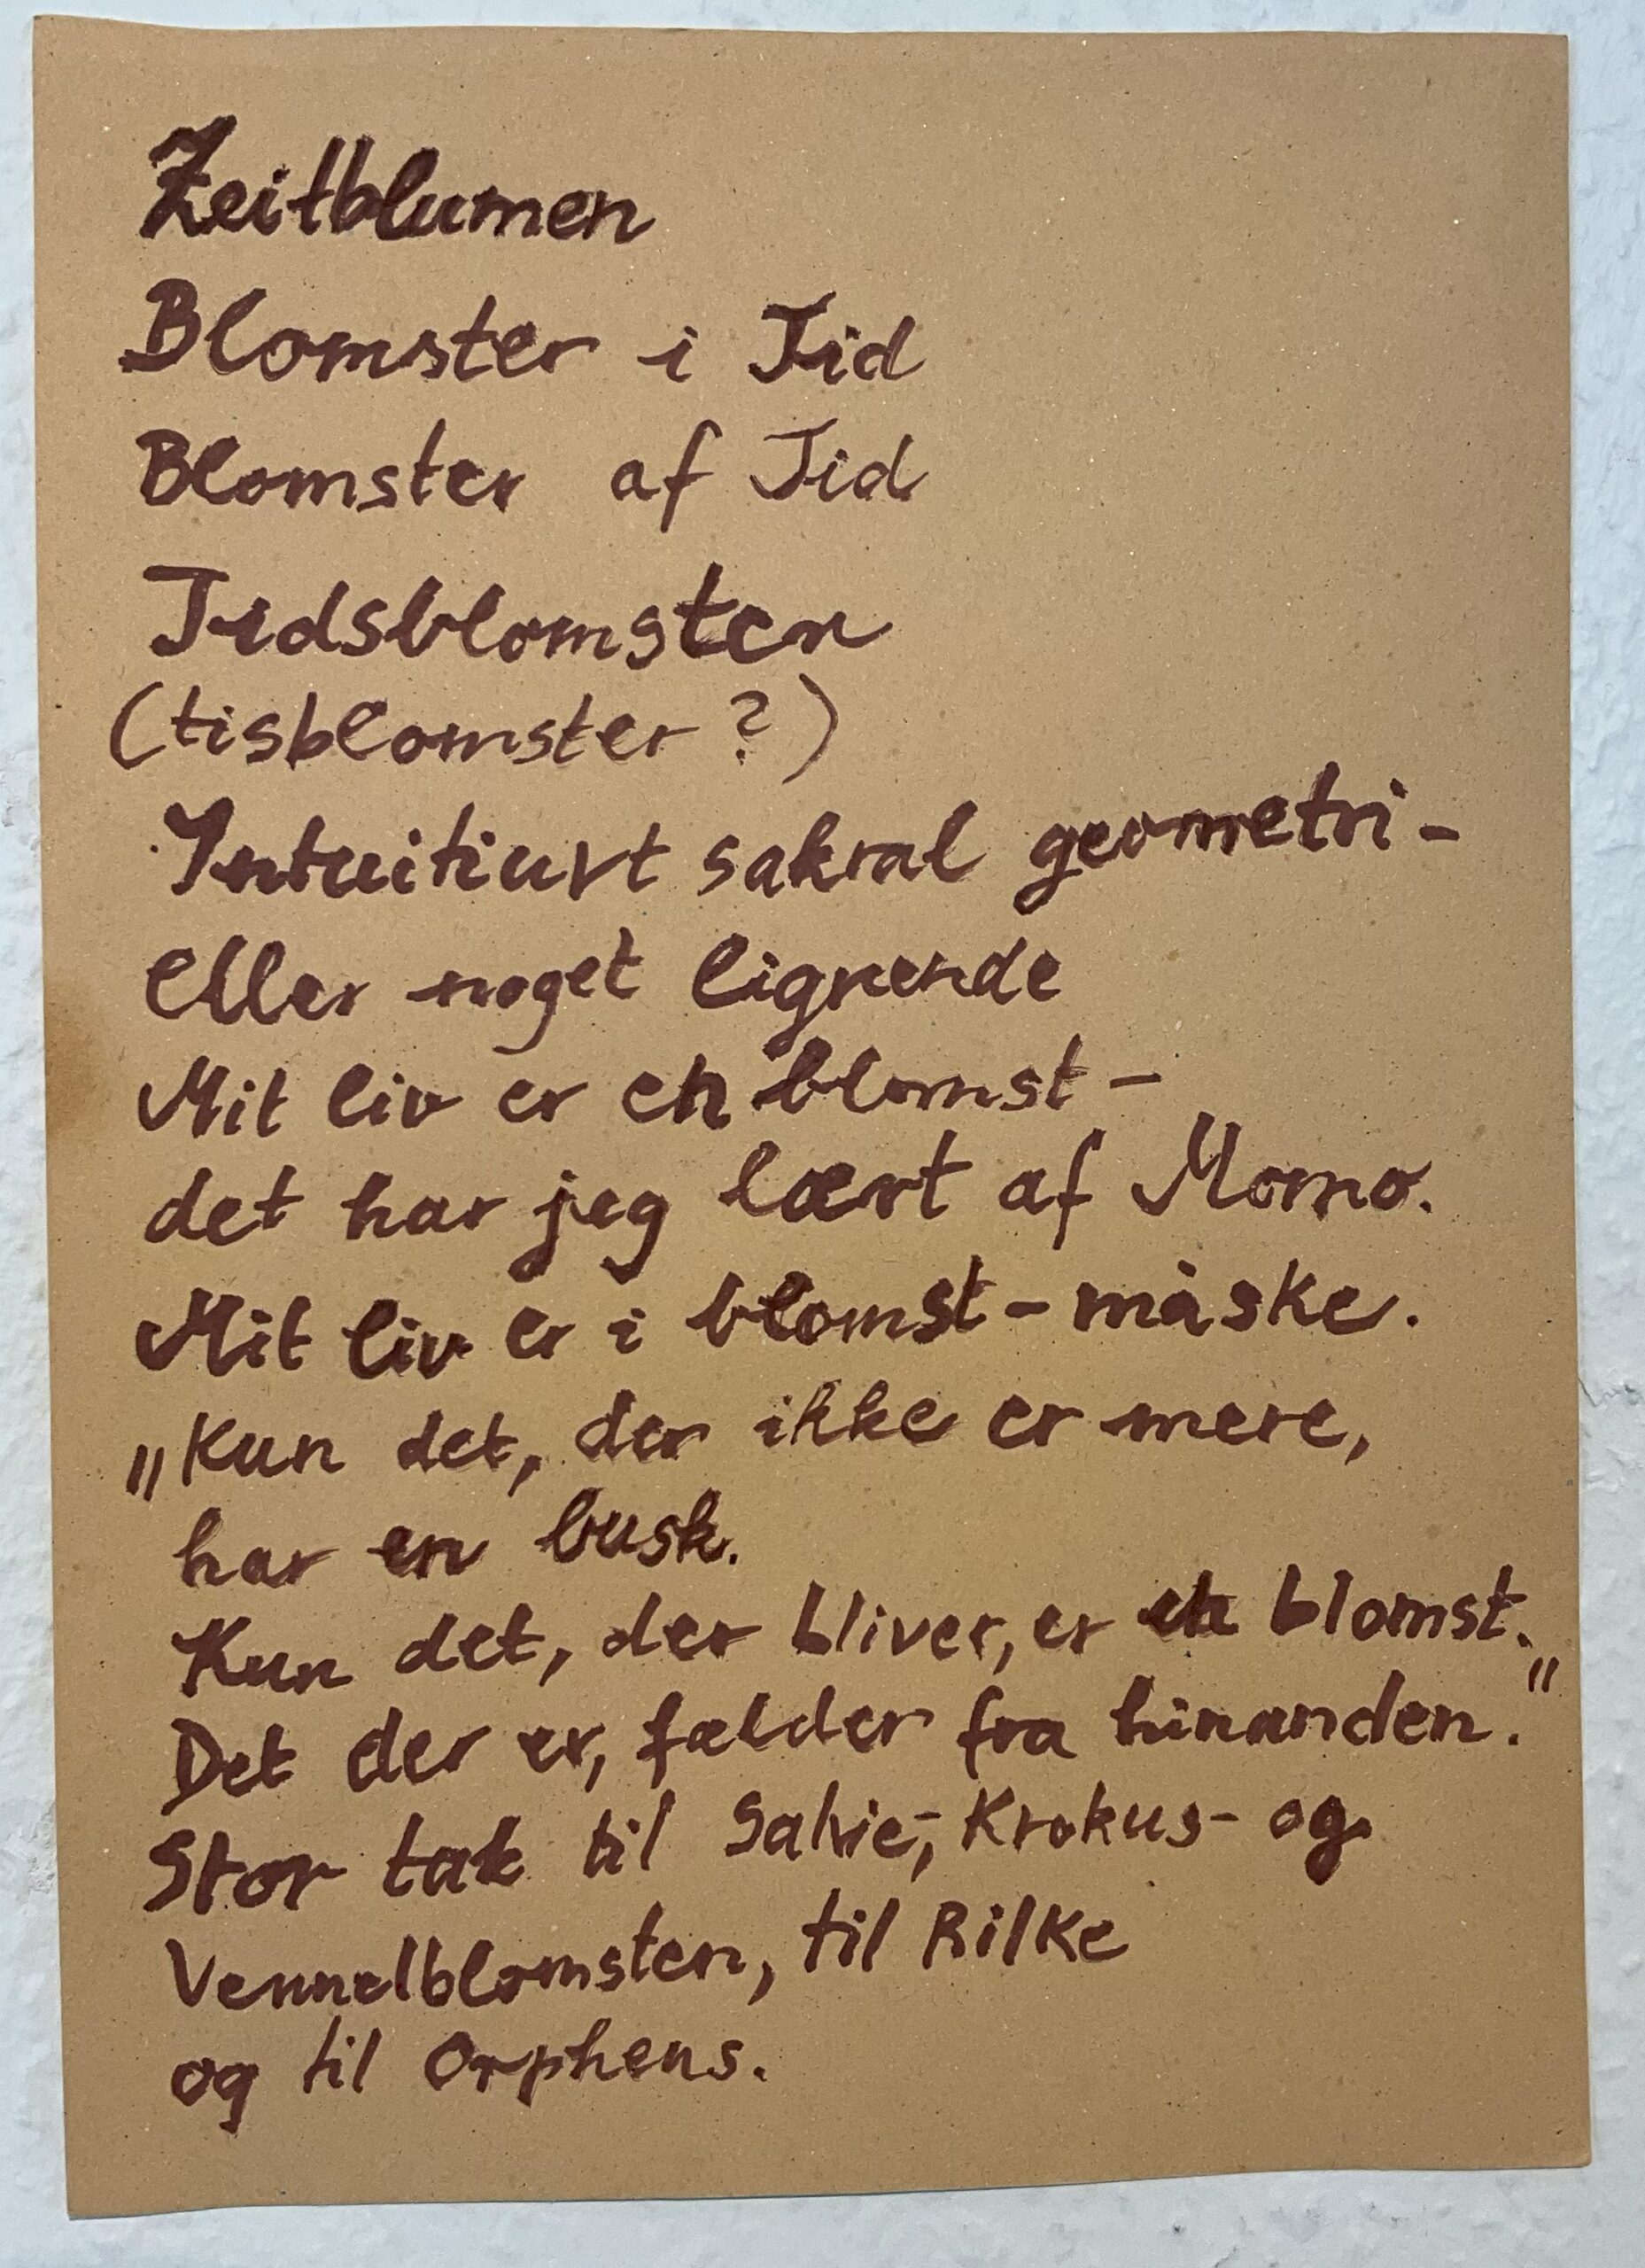 Zeitblumen
Blomster i Tid
Blomster af Tid
Tidsblomsten
(tisblomster?)
Intuitiuvt sakral geometri-
Eller noget lignende
Mit liv er en blomst -
det har jeg lært af Momo.
Mit liv er i blomst - måske.
"Kun det, der ikke er mere,
har en busk.
Kun det, der bliver, er en blomst.
Det der er, falder fra hinanden."
Stor tak til Salvie-, Krokus- og
Vennelblomsten, til Rilke
og til Orpheus.